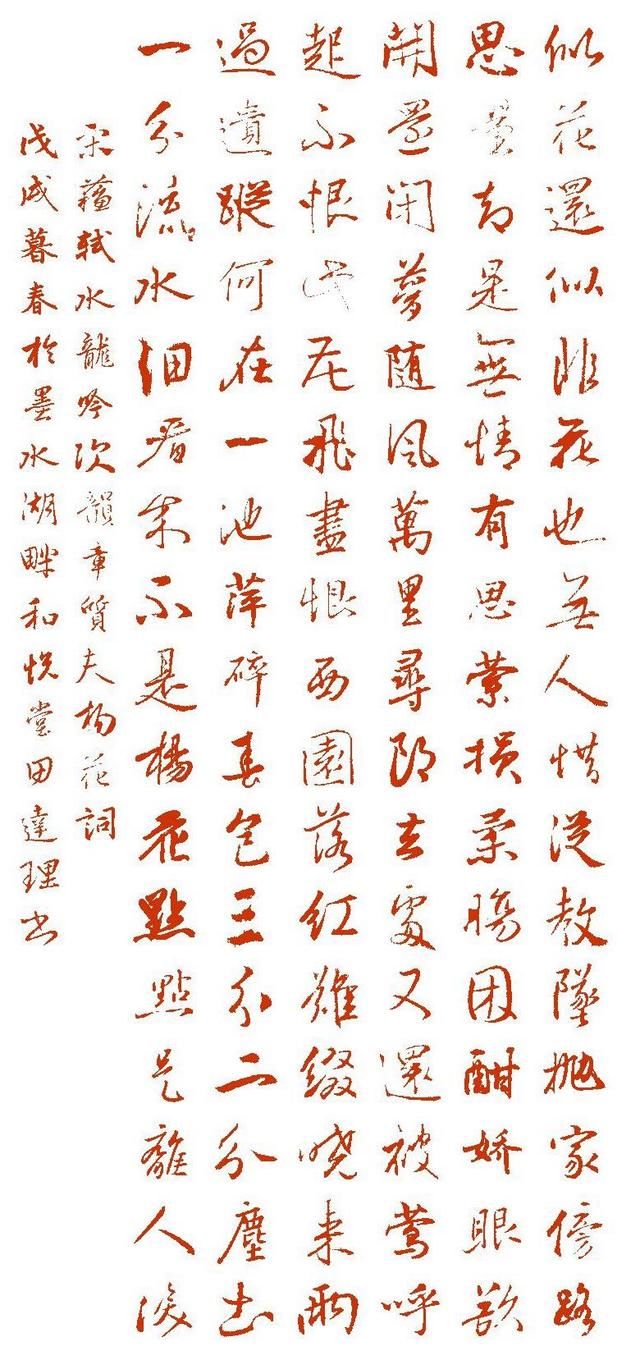 似花還似非花也無人惜從教墜拋家傍路
思量却是無情有思縈損柔腸困酣嬌眼欲
開還閉夢隨風萬里尋郎去處又還被鶯呼
起不恨此花飛盡恨西園落紅難綴曉來雨
過遺蹤何在一池萍碎春色三分二分塵土
一分流水細看來不是楊花點點是離人淚
宋蘇軾水龍吟次韻章質夫楊花詞
戊戌暮春於墨水湖畔和悦堂田達理書